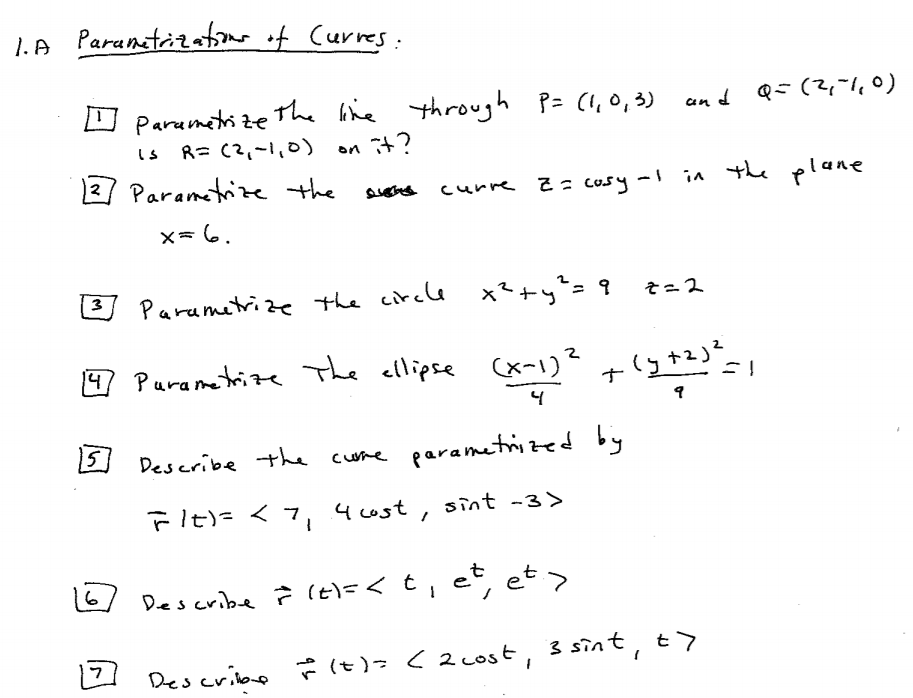 1. A Parametrizations of Curves:
1 Parametrize the line through P = (1, 0, 3) and Q = (2, -1, 0)
is R = (2, -1, 0) on it?
2 Parametrize the curve z = cos y - 1 in the plane
x = 6.
3 Parametrize the circle x² + y² = 9 z = 2
4 Parametrize The ellipse (x-1)²/4 + (y+2)²/9 = 1
5 Describe the curve parametrized by
r⃗(t) = < 7, 4 cost, sint - 3 >
6 Describe r⃗(t) = < t, e^t, e^t >
7 Describe r⃗(t) = < 2 cost, 3 sint, t >